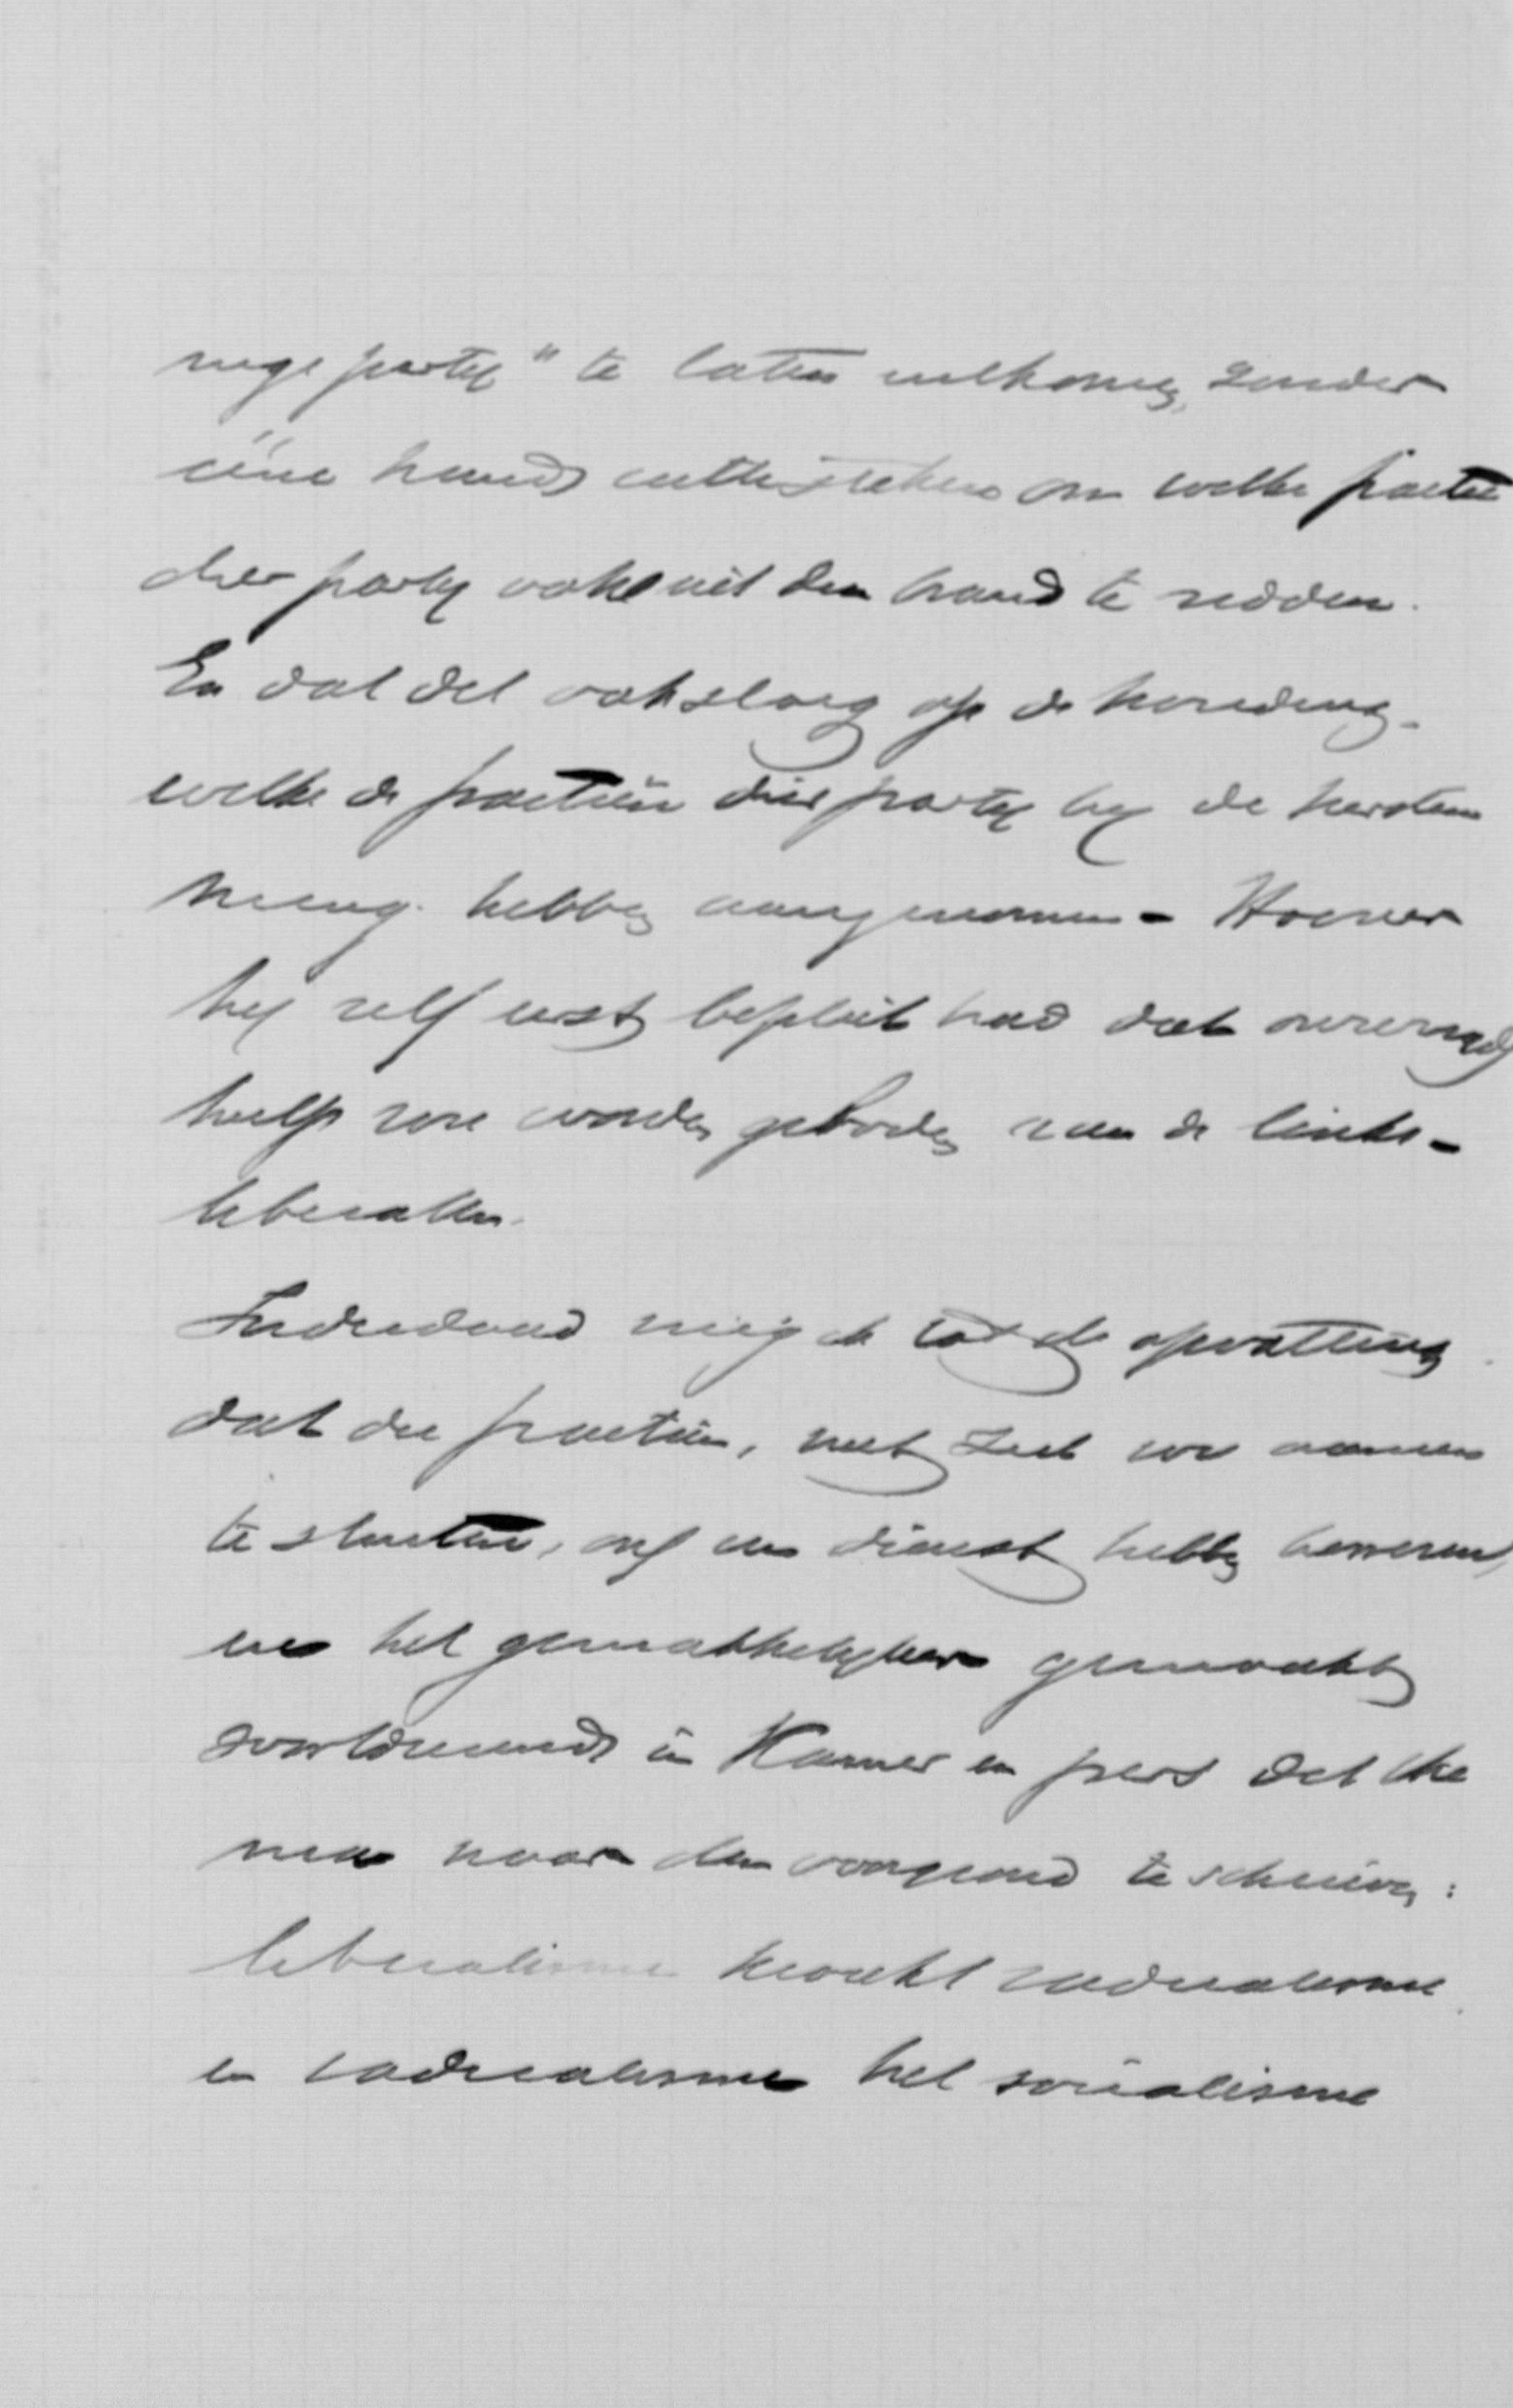 nige party" te laten uitkomen, zonder
ééne hand uittesteken om welke fractie
dier party ook uit den brand te redden.
En dat dit ook sloeg op de houding
welke de fractiën dier party by de herstem
ming hebben aangenomen - Hoever
hy zelf eerst bepleit had dat
hulp zou worden geboden aan de links-
liberalen.
Inderdaad neig ik tot de opvatting
dat die fractiën, met zich zoo aaneen
te sluiten, ons een dienst hebben bewezen,
en het gemakkelyker gemaakt
voortdurend in Kamer en pers het the
ma naar den voorgrond te schuiven:
liberalisme kweekt radicalisme
en radicalisme het socialisme